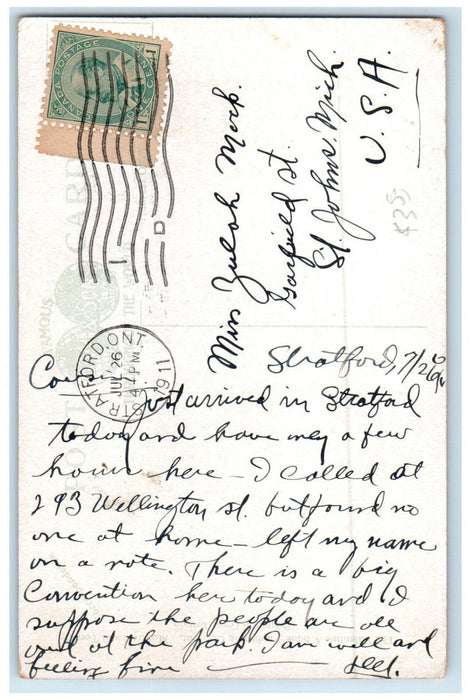 CANADA POSTAGE
ONE CENT
STRATFORD, ONT.
JUL 26
4 PM
1911
D
Miss Zulah Mock.
Garfield st.
St. Johns, Mich.
U.S.A.
435
Stratford, 7/26
Cousin
Just arrived in Stratford
today and have only a few
hours here - I called at
293 Wellington st. but found no
one at home - left my name
on a note. There is a big
Convention here today and I
suppose the people are all
out at the park. I am well and
feeling fine
FAMOUS
THE WORLD
POST CARD